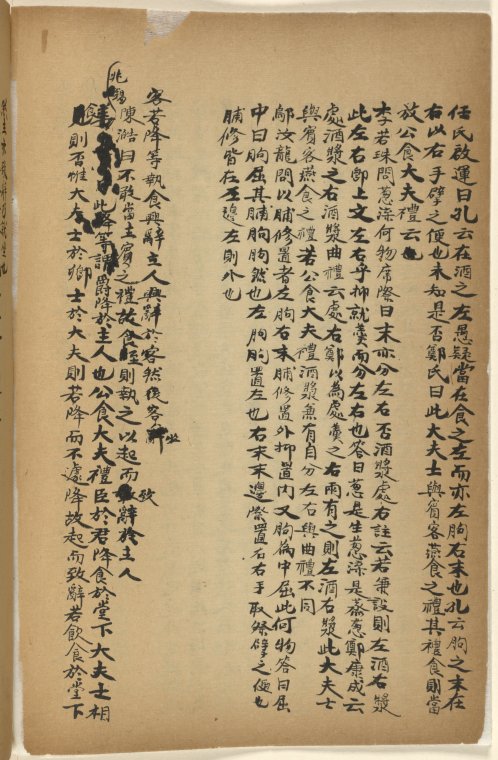 任氏啟運曰孔云在酒之左愚疑當在食之左而亦左朐右末也孔云朐之末在
右以右手擘之便也未知是否鄭氏曰此大夫士與賓客燕食之禮其禮食則當
放公食大夫禮云也
李若珠問葱渫何物席際曰末亦分左右否酒漿處右註云若兼設則左酒右漿
此左右卽上文左右乎抑就羹而分左右也答曰葱是生葱渫是蒸葱鄭康成云
處酒漿之右酒漿曲禮云處右鄭以為處羹之右兩有之則左酒右漿此大夫士
與賓客燕食之禮若公食大夫禮酒漿兼有自分左右與曲禮不同
鄺汝龍問以脯修置者左朐右末脯修置外抑置內又朐為中屈此何物答曰屈
中曰朐屈其脯朐朐然也左朐朐置左也右末末邊際置右右手取祭擘之便也
脯修皆在豆邊左則外也
客若降等執食興辭主人興辭於客然後客坐
兆錫陳澔曰不敢當主賓之禮故食至則執之以起而致辭於主人
此降等謂爵降於主人也公食大夫禮臣於君降食於堂下大夫士相
食則否惟大夫士於卿士於大夫則若降而不遽降故起而致辭若飲食於堂下